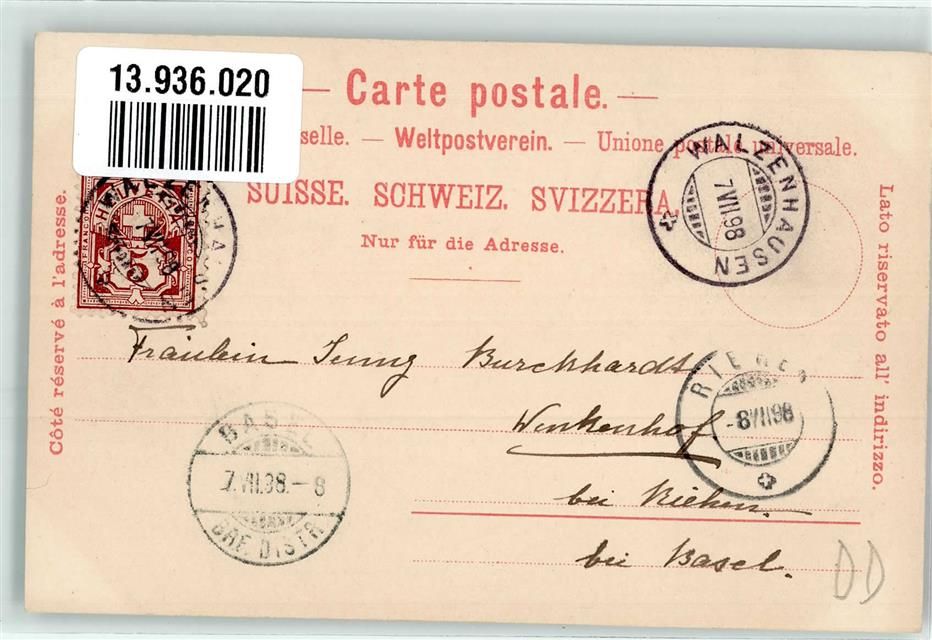 13.936.020
— Carte postale. —
selle. — Weltpostverein. — Unione postale universale.
SUISSE. SCHWEIZ. SVIZZERA.
Nur für die Adresse.
Côté réservé à l'adresse.
Lato riservato all' indirizzo.
WALZENHAUSEN
7 VII 98
FRANCO
5
Fräulein Jenny Burckhardt
Wenkenhof
bei Riehen.
bei Basel.
RIEHEN
-8 VII 98
BASEL
7.VII.98.-8
BRF. DISTR.
DD